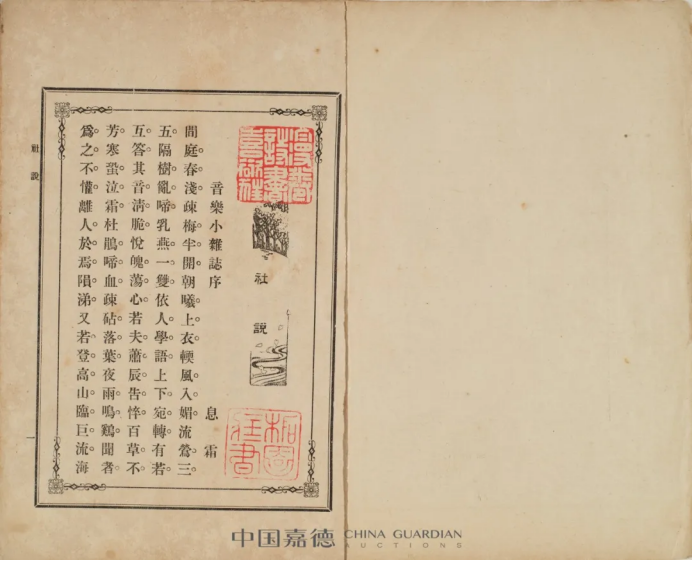 社說
音樂小雜誌序 息霜
閒庭春淺。疎梅半開。朝曦上衣。輭風入媚。流鶯三
五。隔樹亂啼。乳燕一雙。依人學語。上下宛轉。有若
互答。其音淸脆。悅魄蕩心。若夫蕭辰吿悴。百草不
芳。寒蛩泣霜。杜鵑啼血。疎砧落葉。夜雨鳴鷄。聞者
爲之不懽。離人於焉隕涕。又若登高山。臨巨流。海
社說 一
中国嘉德 CHINA GUARDIAN
AUCTIONS